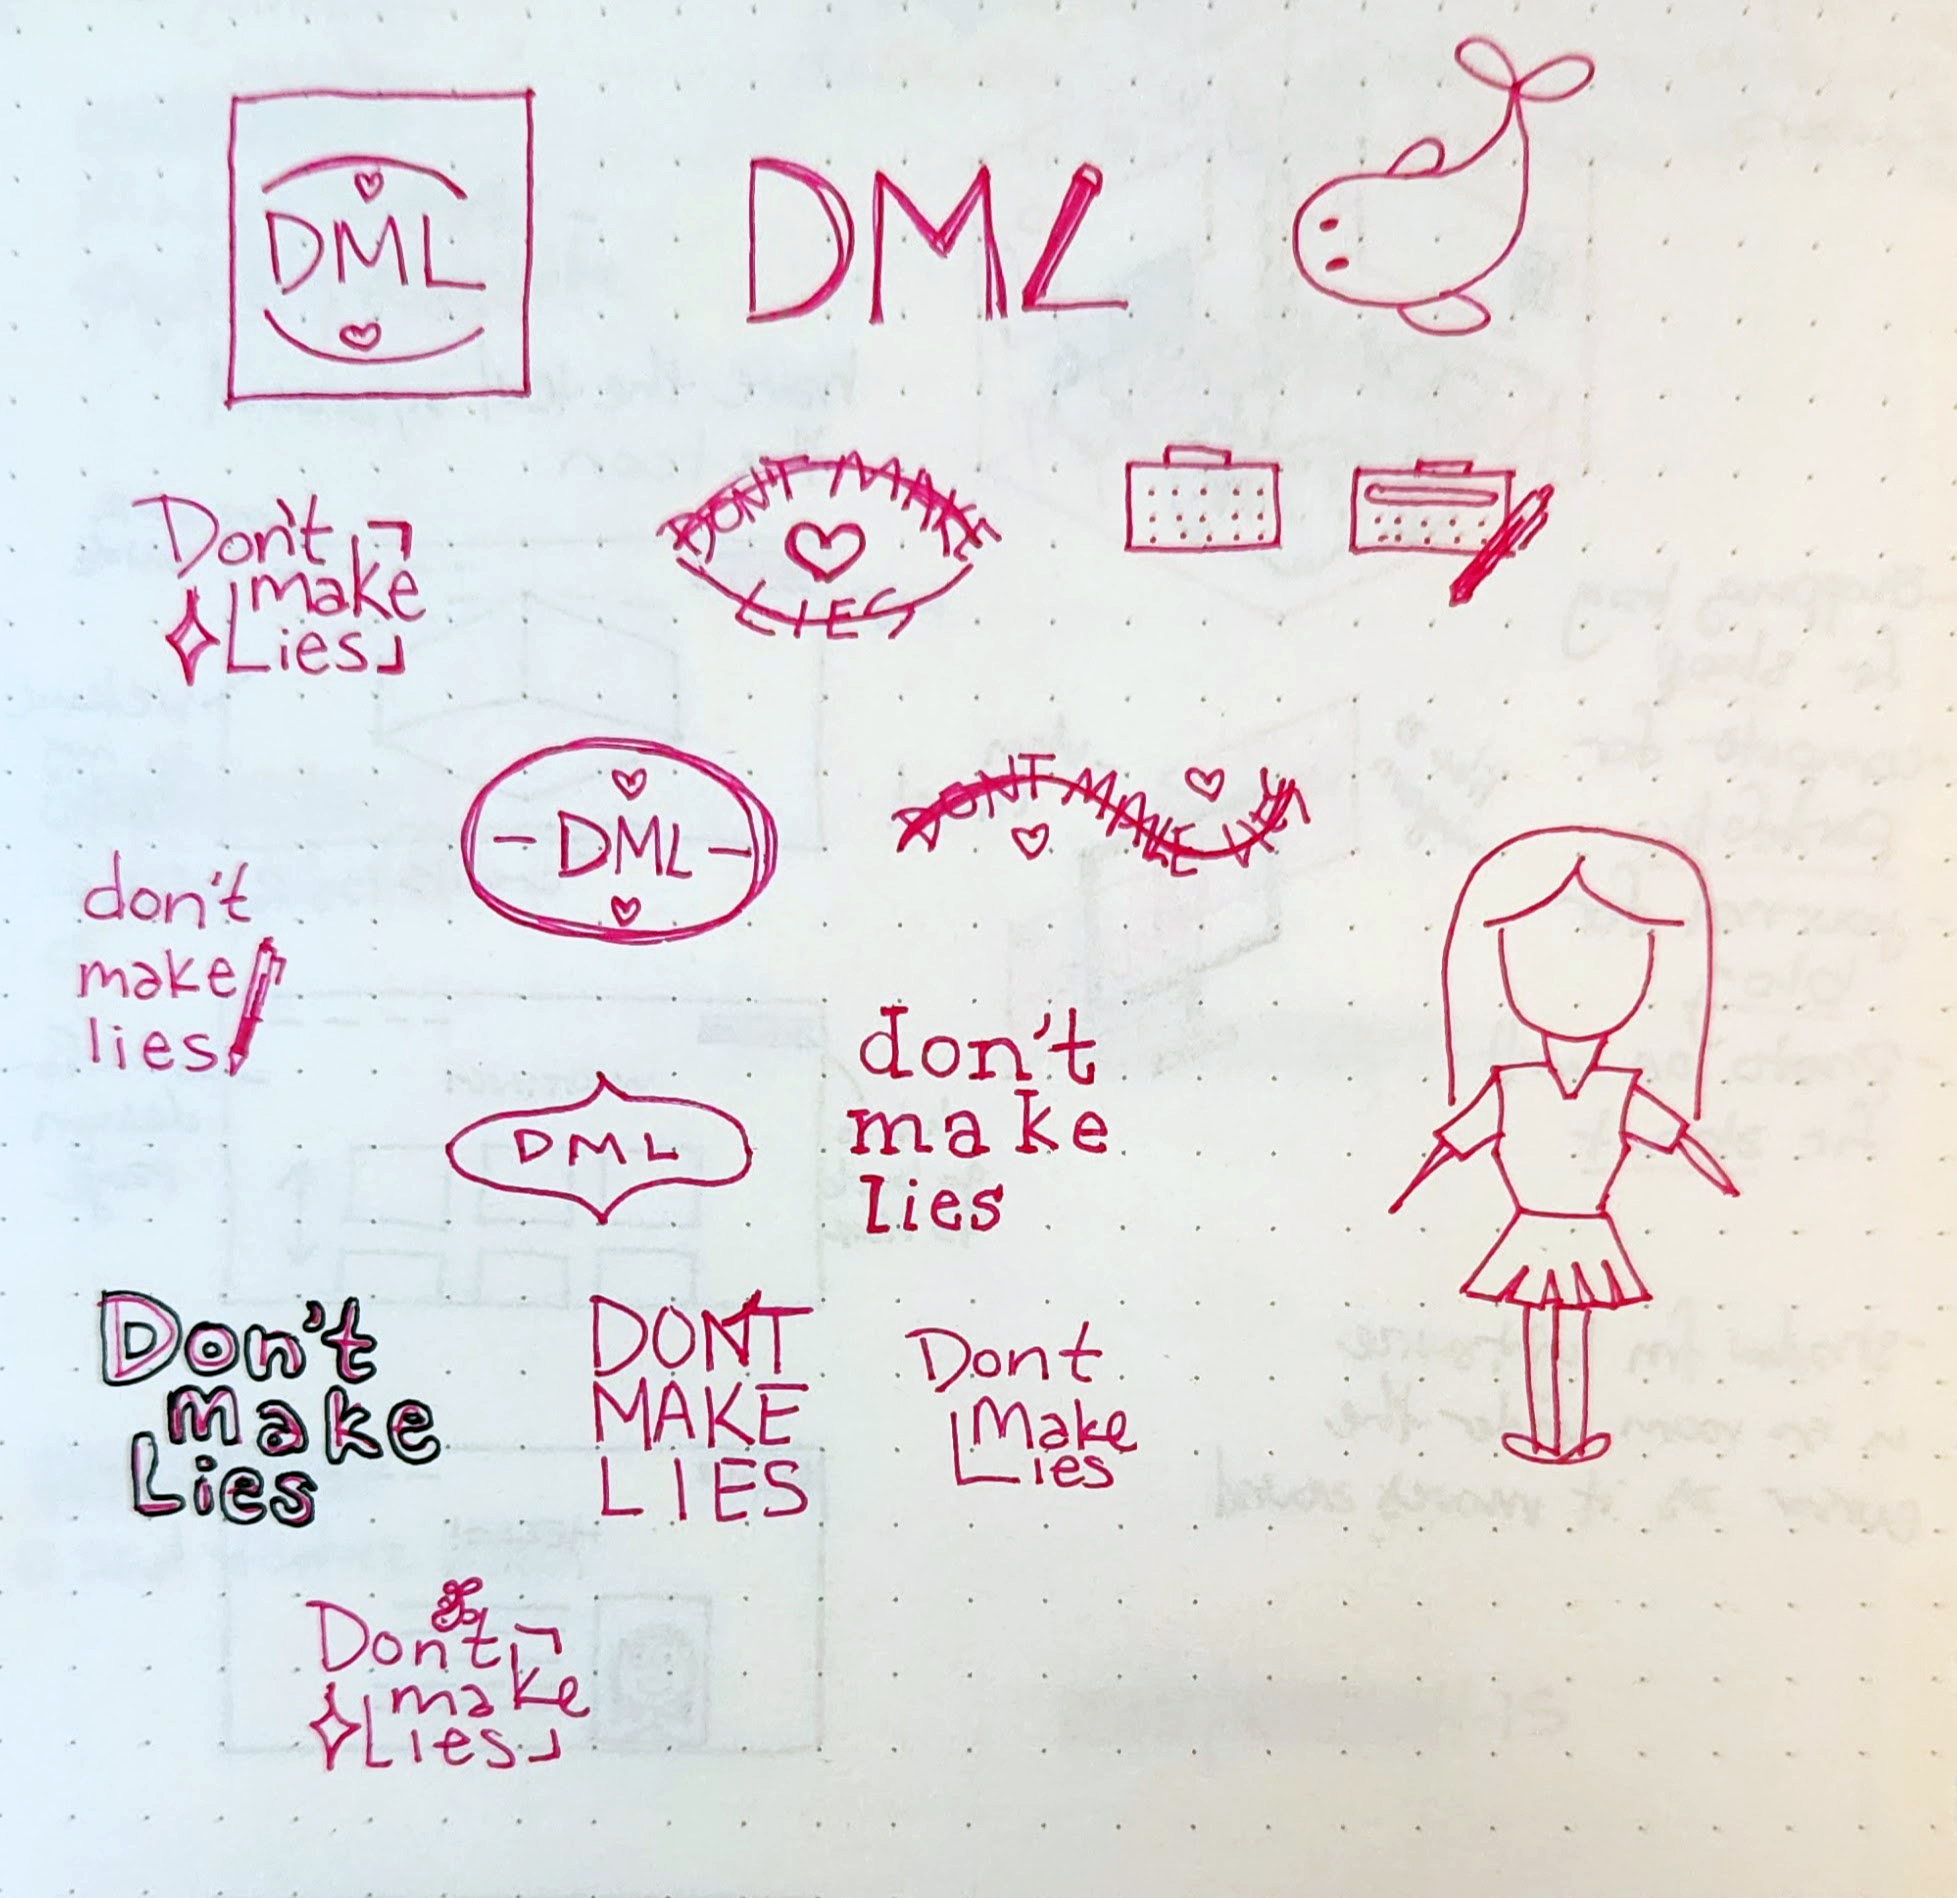 DML
DML
Don't
make
Lies
DON'T MAKE
LIES
-DML-
DONT MAKE LIES
don't
make
lies
don't
make
lies
DML
Don't
make
Lies
DONT
MAKE
LIES
Dont
Make
Lies
Don't
make
Lies